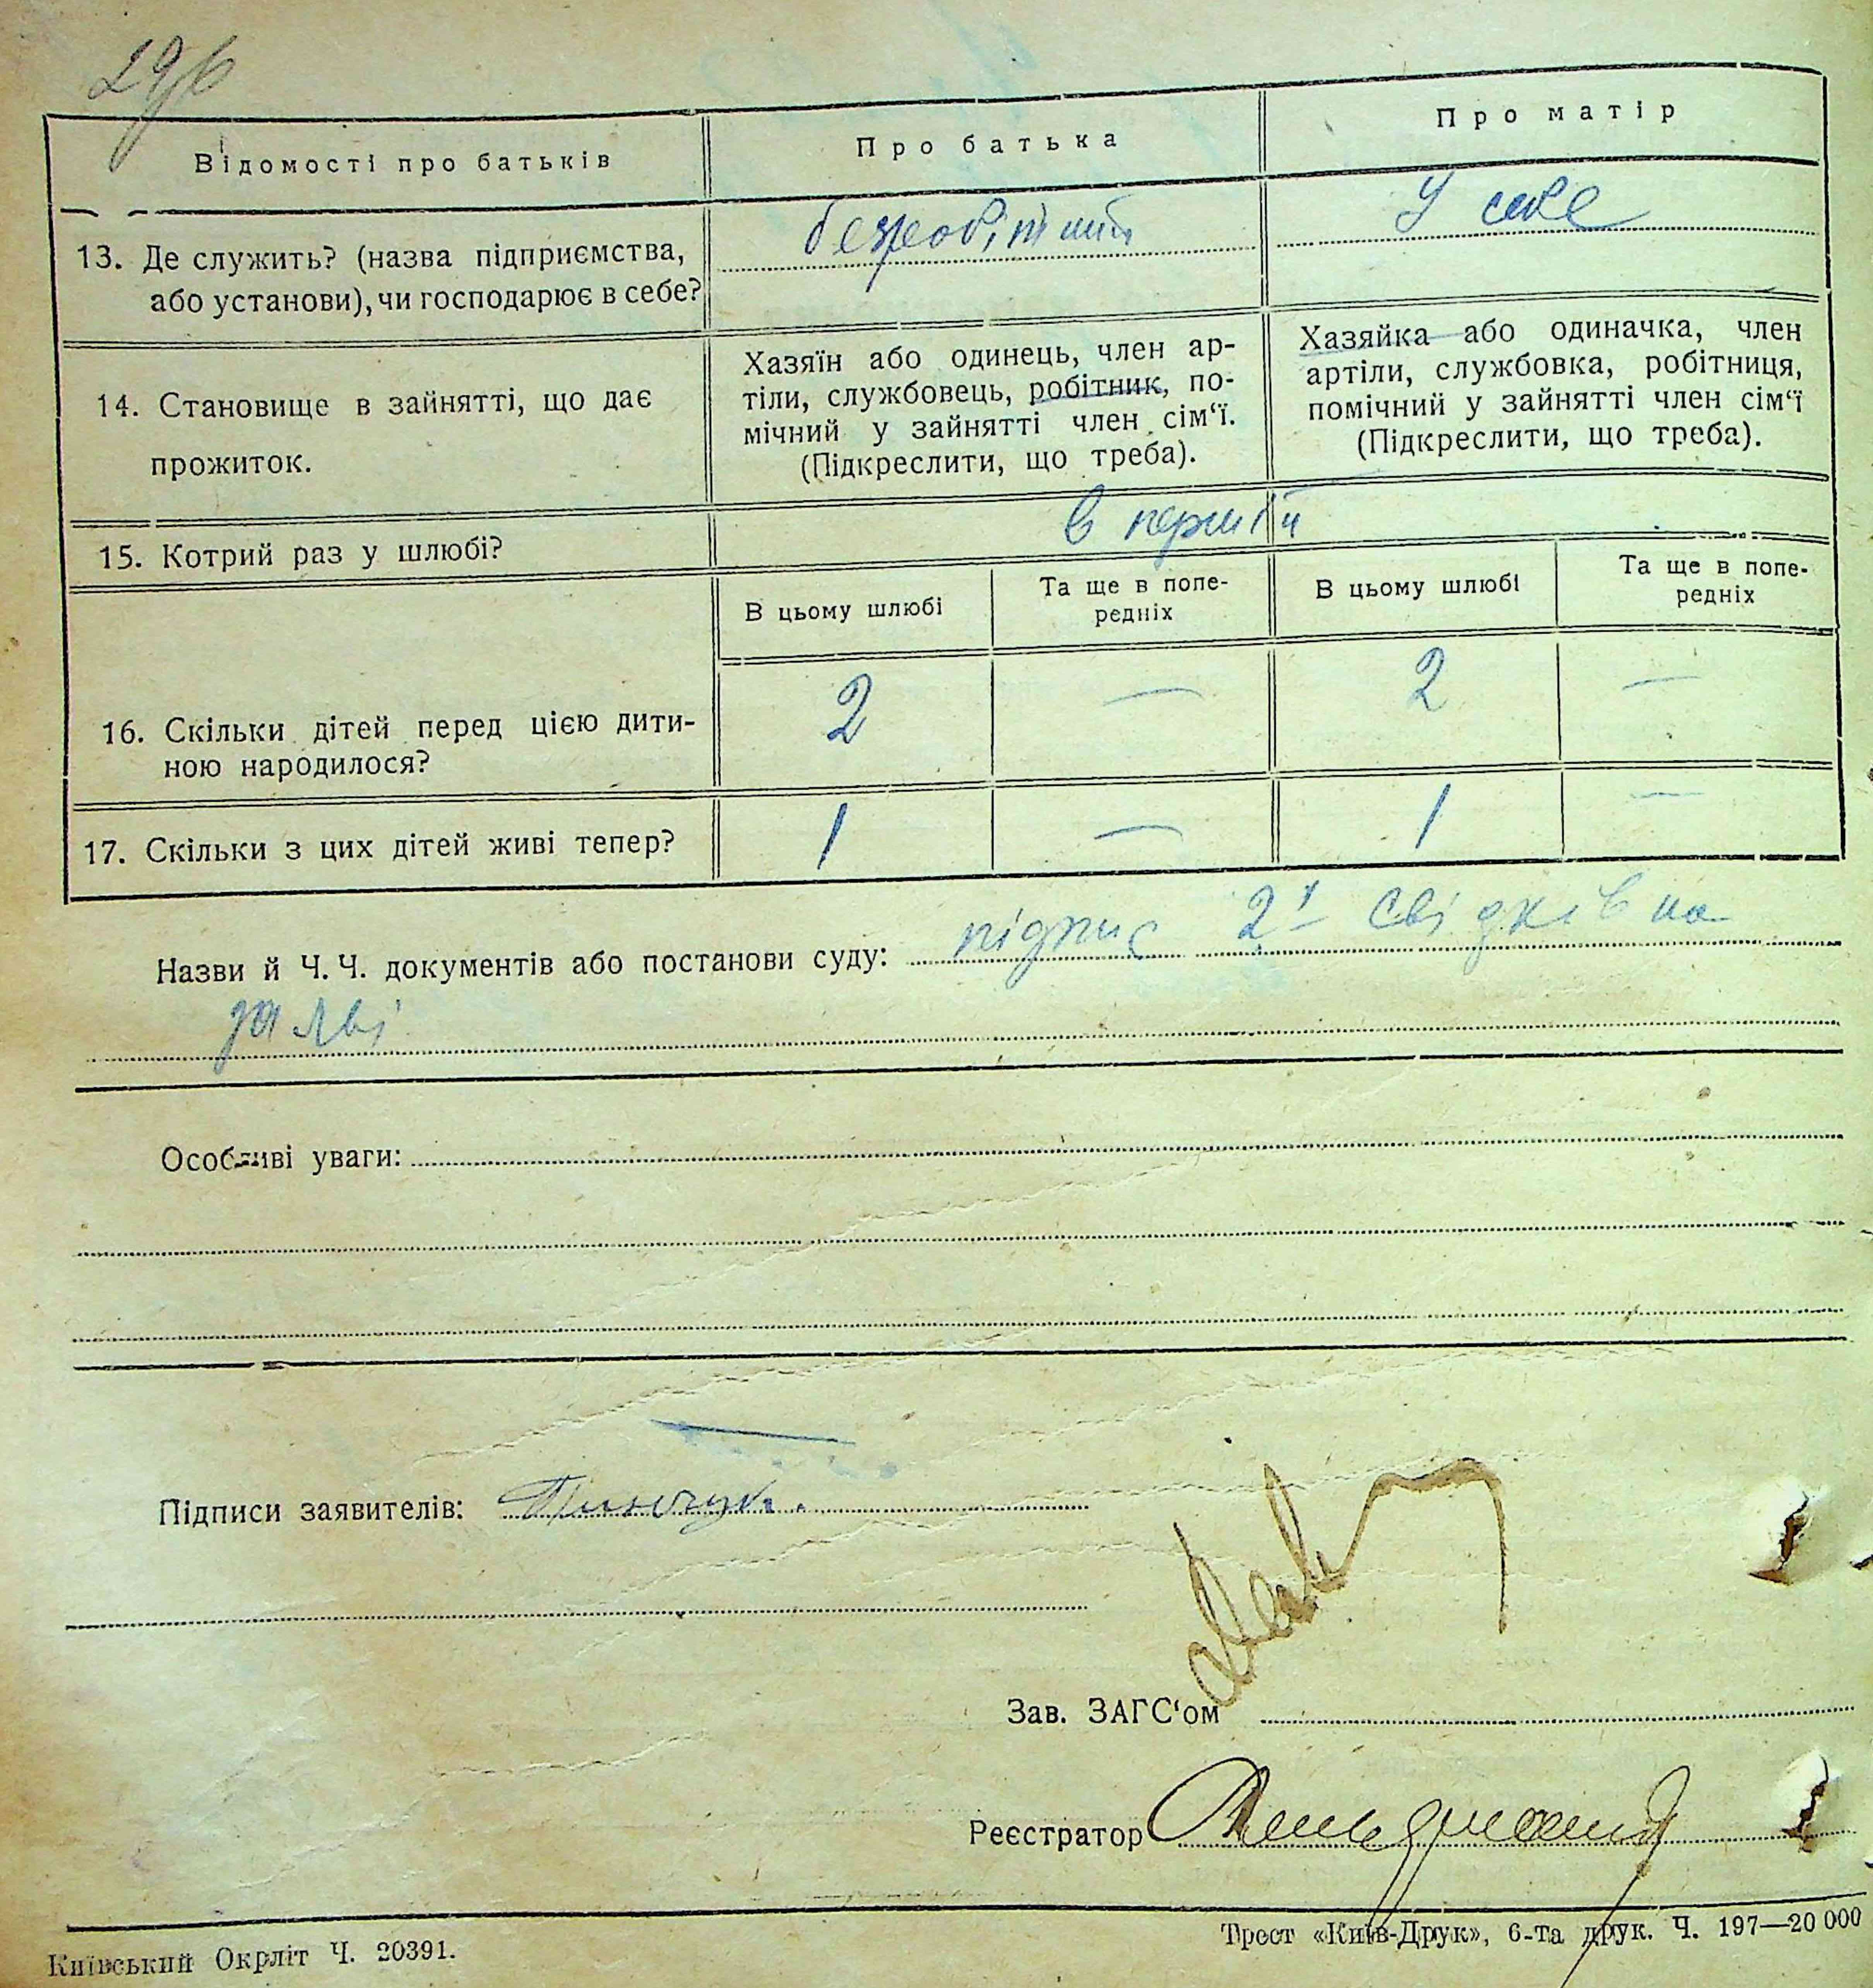 296
Відомості про батьків
Про батька
Про матір
13. Де служить? (назва підприємства,
або установи), чи господарює в себе?
безробітний
У себе
14. Становище в зайнятті, що дає
прожиток.
Хазяїн або одинець, член ар-
тіли, службовець, робітник, по-
мічний у зайнятті член сім‘ї.
(Підкреслити, що треба).
Хазяйка або одиначка, член
артіли, службовка, робітниця,
помічний у зайнятті член сім‘ї
(Підкреслити, що треба).
15. Котрий раз у шлюбі?
в перший
В цьому шлюбі
Та ще в попе-
редніх
В цьому шлюбі
Та ще в попе-
редніх
16. Скільки дітей перед цією дити-
ною народилося?
2 — 2 —
17. Скільки з цих дітей живі тепер?
1 — 1 —
Назви й Ч. Ч. документів або постанови суду: підпис 2х свідків на
заяві
Особливі уваги:
Підписи заявителів: Пинчук.
Зав. ЗАГС‘ом
Реєстратор
Київський Окрліт Ч. 20391.
Трест «Київ-Друк», 6-та друк. Ч. 197—20 000